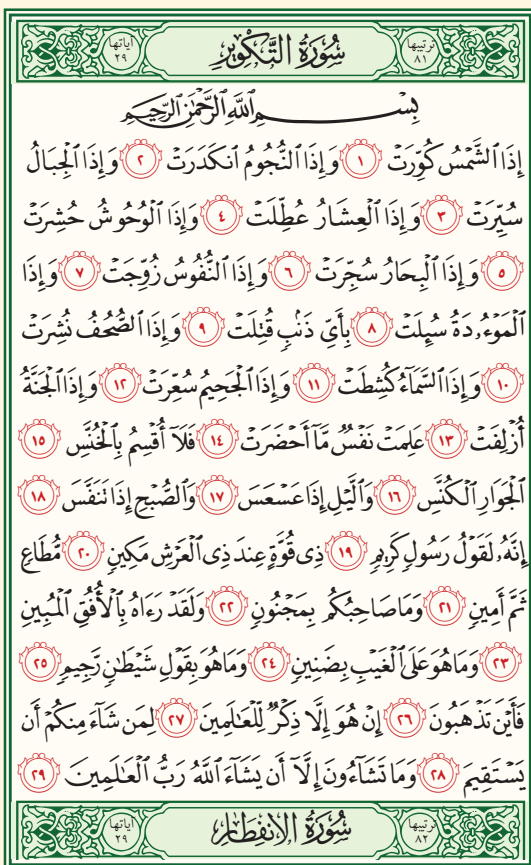 ترتيبها ٨١ سُورَةُ التَّكْوِيرِ اياتها ٢٩
بِسْمِ ٱللَّهِ ٱلرَّحْمَٰنِ ٱلرَّحِيمِ
إِذَا ٱلشَّمْسُ كُوِّرَتْ ١ وَإِذَا ٱلنُّجُومُ ٱنكَدَرَتْ ٢ وَإِذَا ٱلْجِبَالُ
سُيِّرَتْ ٣ وَإِذَا ٱلْعِشَارُ عُطِّلَتْ ٤ وَإِذَا ٱلْوُحُوشُ حُشِرَتْ
٥ وَإِذَا ٱلْبِحَارُ سُجِّرَتْ ٦ وَإِذَا ٱلنُّفُوسُ زُوِّجَتْ ٧ وَإِذَا
ٱلْمَوْءُۥدَةُ سُئِلَتْ ٨ بِأَيِّ ذَنۢبٍ قُتِلَتْ ٩ وَإِذَا ٱلصُّحُفُ نُشِرَتْ
١٠ وَإِذَا ٱلسَّمَآءُ كُشِطَتْ ١١ وَإِذَا ٱلْجَحِيمُ سُعِّرَتْ ١٢ وَإِذَا ٱلْجَنَّةُ
أُزْلِفَتْ ١٣ عَلِمَتْ نَفْسٌ مَّآ أَحْضَرَتْ ١٤ فَلَآ أُقْسِمُ بِٱلْخُنَّسِ ١٥
ٱلْجَوَارِ ٱلْكُنَّسِ ١٦ وَٱلَّيْلِ إِذَا عَسْعَسَ ١٧ وَٱلصُّبْحِ إِذَا تَنَفَّسَ ١٨
إِنَّهُۥ لَقَوْلُ رَسُولٍ كَرِيمٍ ١٩ ذِى قُوَّةٍ عِندَ ذِى ٱلْعَرْشِ مَكِينٍ ٢٠ مُّطَاعٍ
ثَمَّ أَمِينٍ ٢١ وَمَا صَاحِبُكُم بِمَجْنُونٍ ٢٢ وَلَقَدْ رَءَاهُ بِٱلْأُفُقِ ٱلْمُبِينِ
٢٣ وَمَا هُوَ عَلَى ٱلْغَيْبِ بِضَنِينٍ ٢٤ وَمَا هُوَ بِقَوْلِ شَيْطَٰنٍ رَّجِيمٍ ٢٥
فَأَيْنَ تَذْهَبُونَ ٢٦ إِنْ هُوَ إِلَّا ذِكْرٌ لِّلْعَٰلَمِينَ ٢٧ لِمَن شَآءَ مِنكُمْ أَن
يَسْتَقِيمَ ٢٨ وَمَا تَشَآءُونَ إِلَّآ أَن يَشَآءَ ٱللَّهُ رَبُّ ٱلْعَٰلَمِينَ ٢٩
ترتيبها ٨٢ سُورَةُ الانفِطَارِ اياتها ٢٩